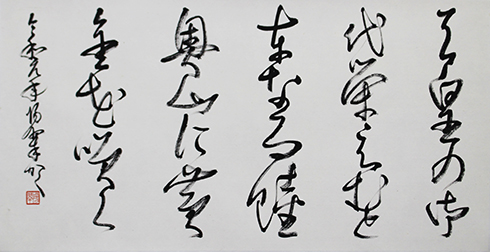 天皇の御
代栄えむと
東なる陸
奥山に黄
金花咲く
令和元年